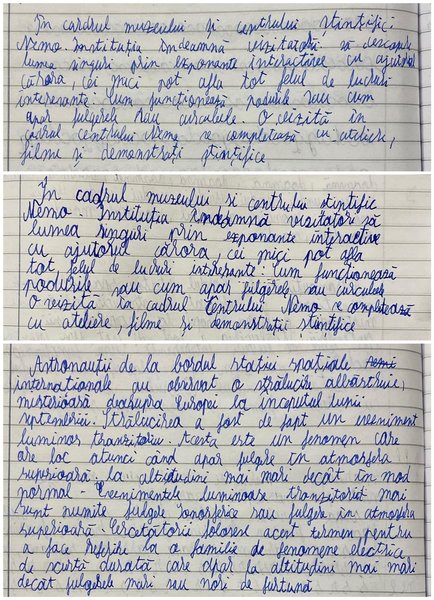 În cadrul muzeului și centrului științific
Nemo. Instituția îndeamnă vizitatorii să descopere
lumea singuri prin exponante interactive cu ajutorul
cărora, cei mici pot afla tot felul de lucruri
interesante: Cum funcționează podurile sau cum
apar fulgerele sau curcubeele. O vizită în
cadrul centrului Nemo se completează cu ateliere,
filme și demonstrați științifice
În cadrul muzeului si centrului stintific
Nemo. Instituția îndeamnă vizitatori să
lumea singuri prin exponante interactive
cu ajutorul cărora, cei mici pot afla
tot felul de lucruri intresante: cum funcționează
podurile sau cum apar fulgerele sau
O vizită în cadrul Centrului Nemo se completează
cu ateliere, filme si demonstrații stiintifice
Astronauții de la bordul stației spațiale
internaționale au observat o strălucire albăstruie,
misterioară deasupra Europei la începutul lunii
septembrie. Strălucirea a fost de fapt un eveniment
luminos tranzitoriu. Acesta este un fenomen care
are loc atunci când apar fulgere în atmosfera
superioară, la altitudini mai mari decât în mod
normal. Evenimentele luminoase tranzitorii mai
sunt numite fulgere ionosferice sau fulgere în atmosfera
superioară. Cercetătorii folosesc acest termen pentru
a face referire la o familie de fenomene electrice
de scurtă durată care apar la altitudini mai mari
decât fulgerele meri sau nori de furtună